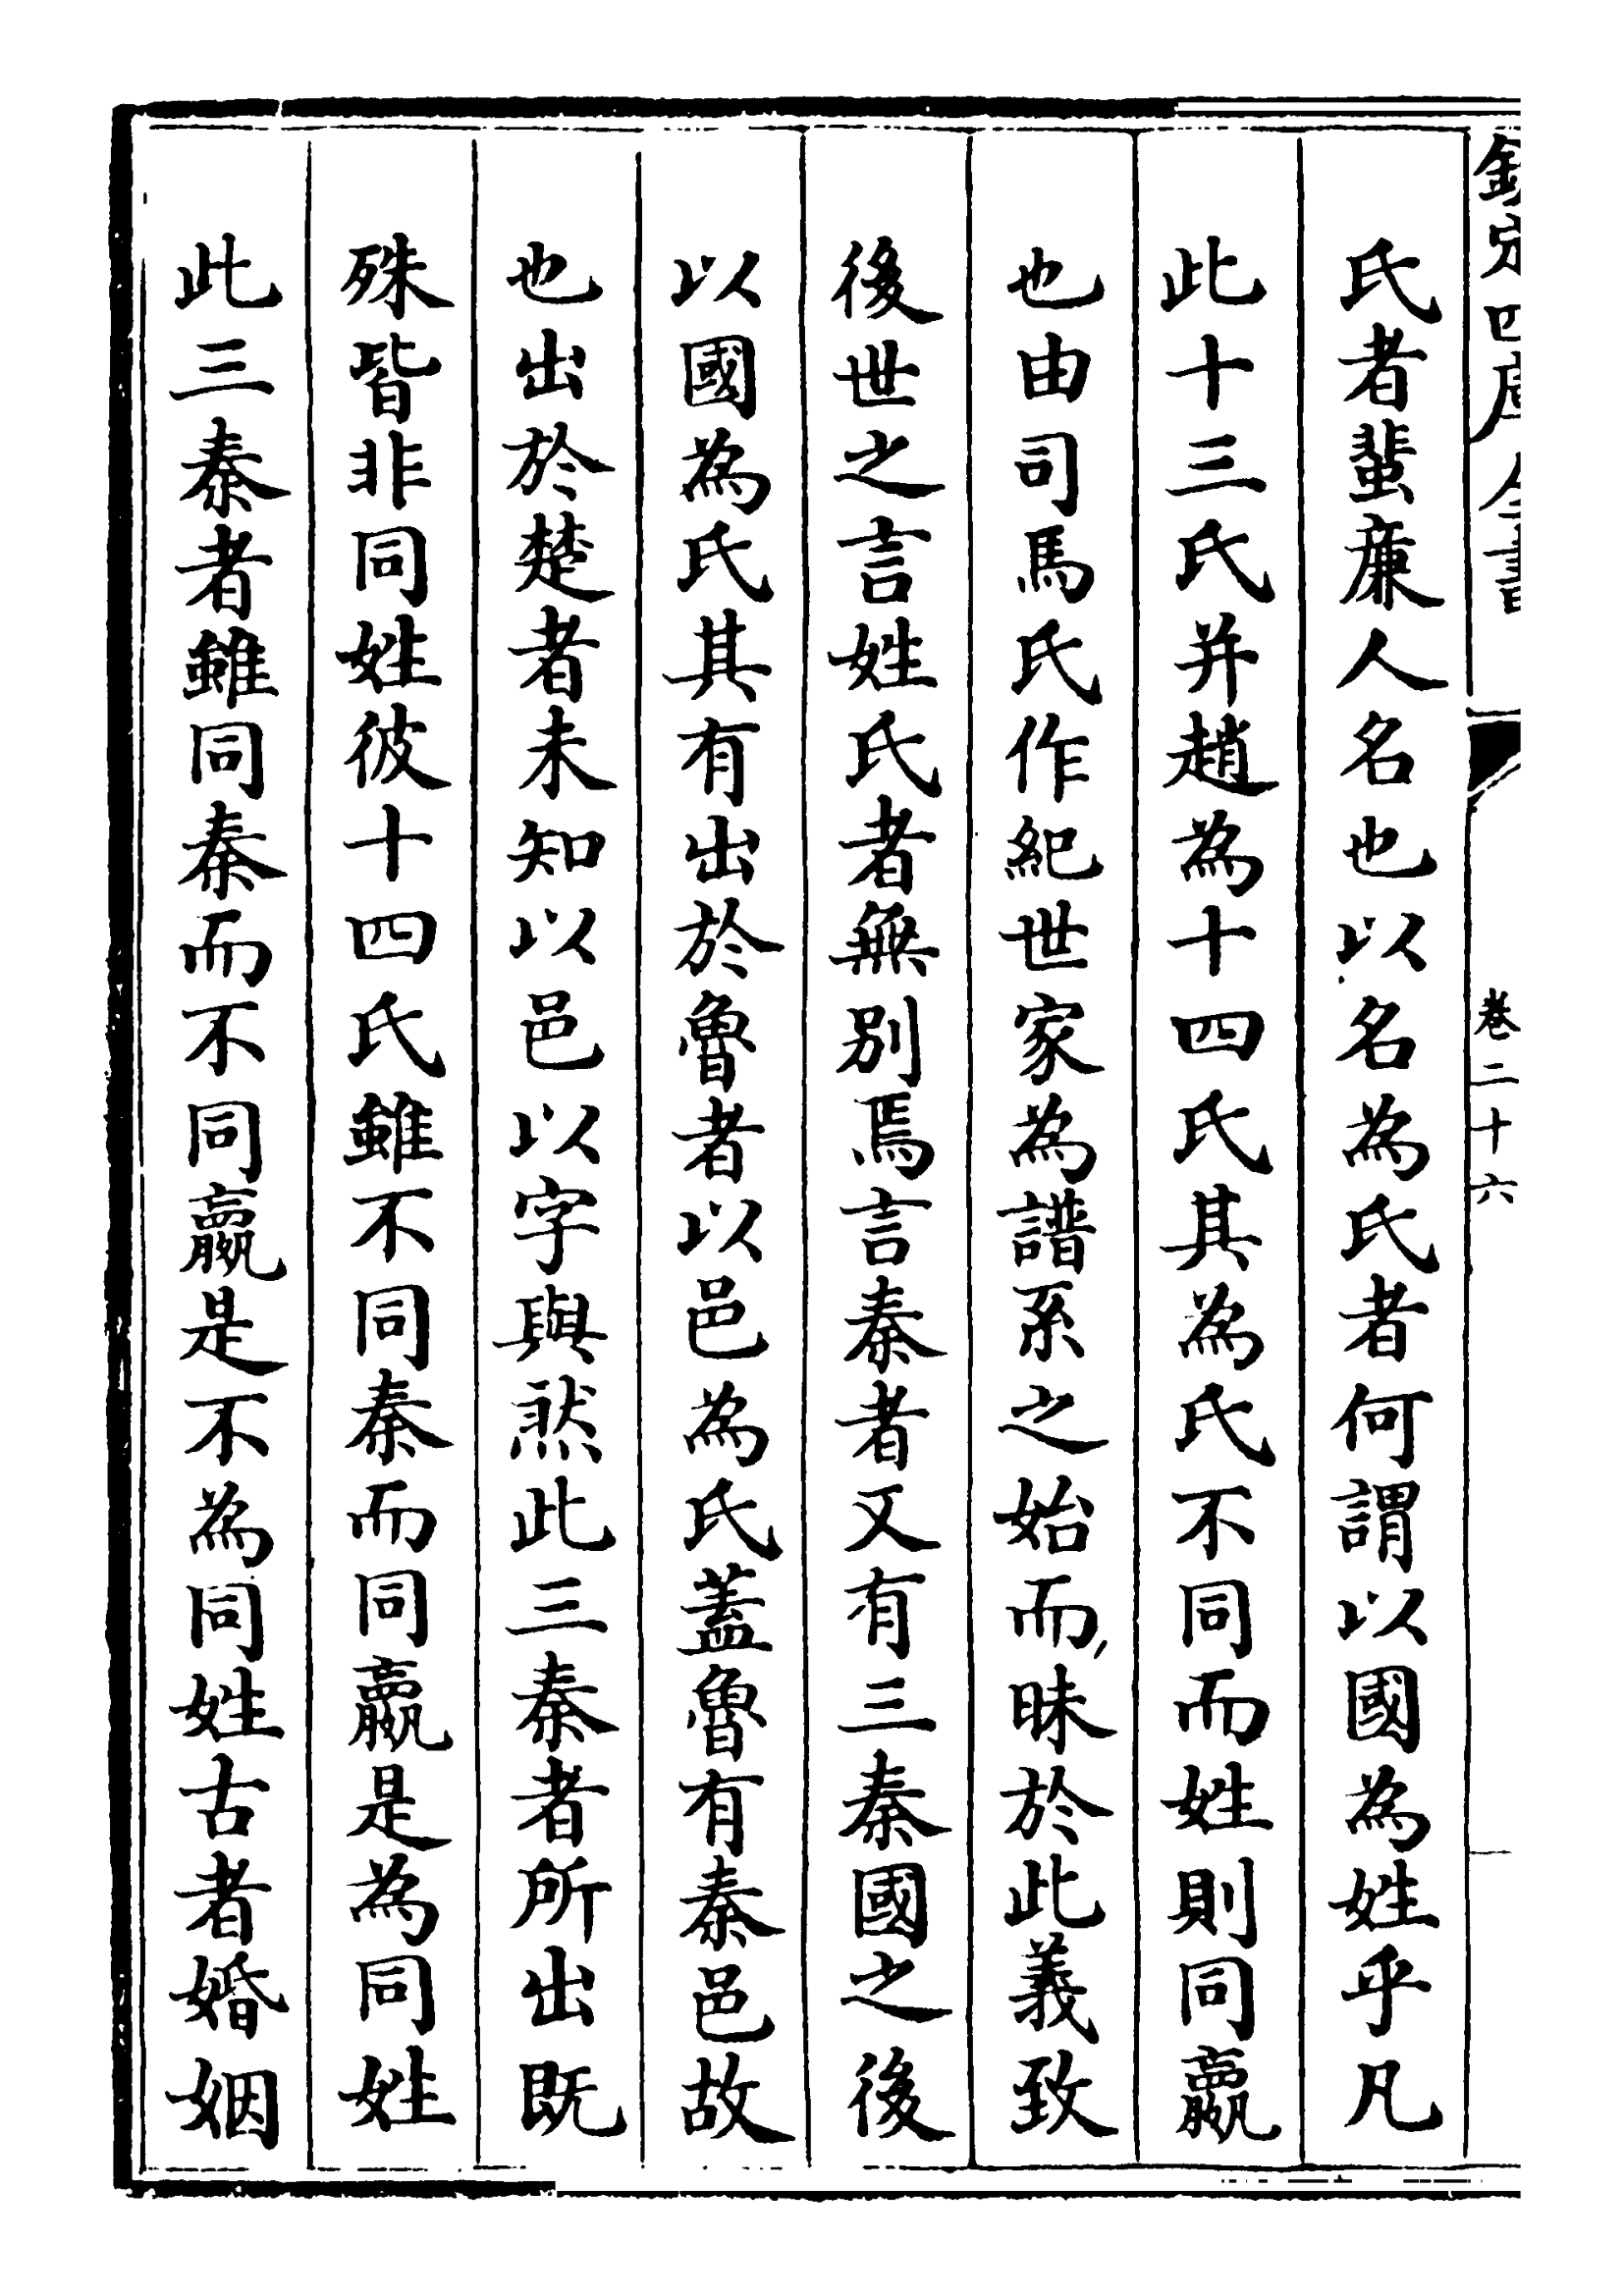 欽定四庫全書
卷二十六
氏者蜚廉人名也以名為氏者何謂以國為姓乎凡
此十三氏并趙為十四氏其為氏不同而姓則同嬴
也由司馬氏作紀世家為譜系之始而昧於此義致
後世之言姓氏者無別焉言秦者又有三秦國之後
以國為氏其有出於魯者以邑為氏蓋魯有秦邑故
也出於楚者未知以邑以字與然此三秦者所出既
殊皆非同姓彼十四氏雖不同秦而同嬴是為同姓
此三秦者雖同秦而不同嬴是不為同姓古者婚姻